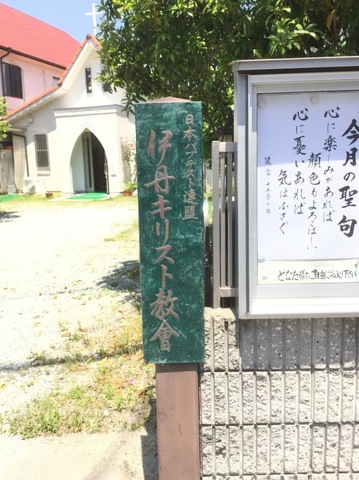 日本バプテスト連盟
伊丹キリスト教會
今月の聖句
心に楽しみがあれば
顔色もよろこばしい
心に憂いあれば
気はふさぐ
箴言 十五章十三節
どなた様もご自由にお入り下さい